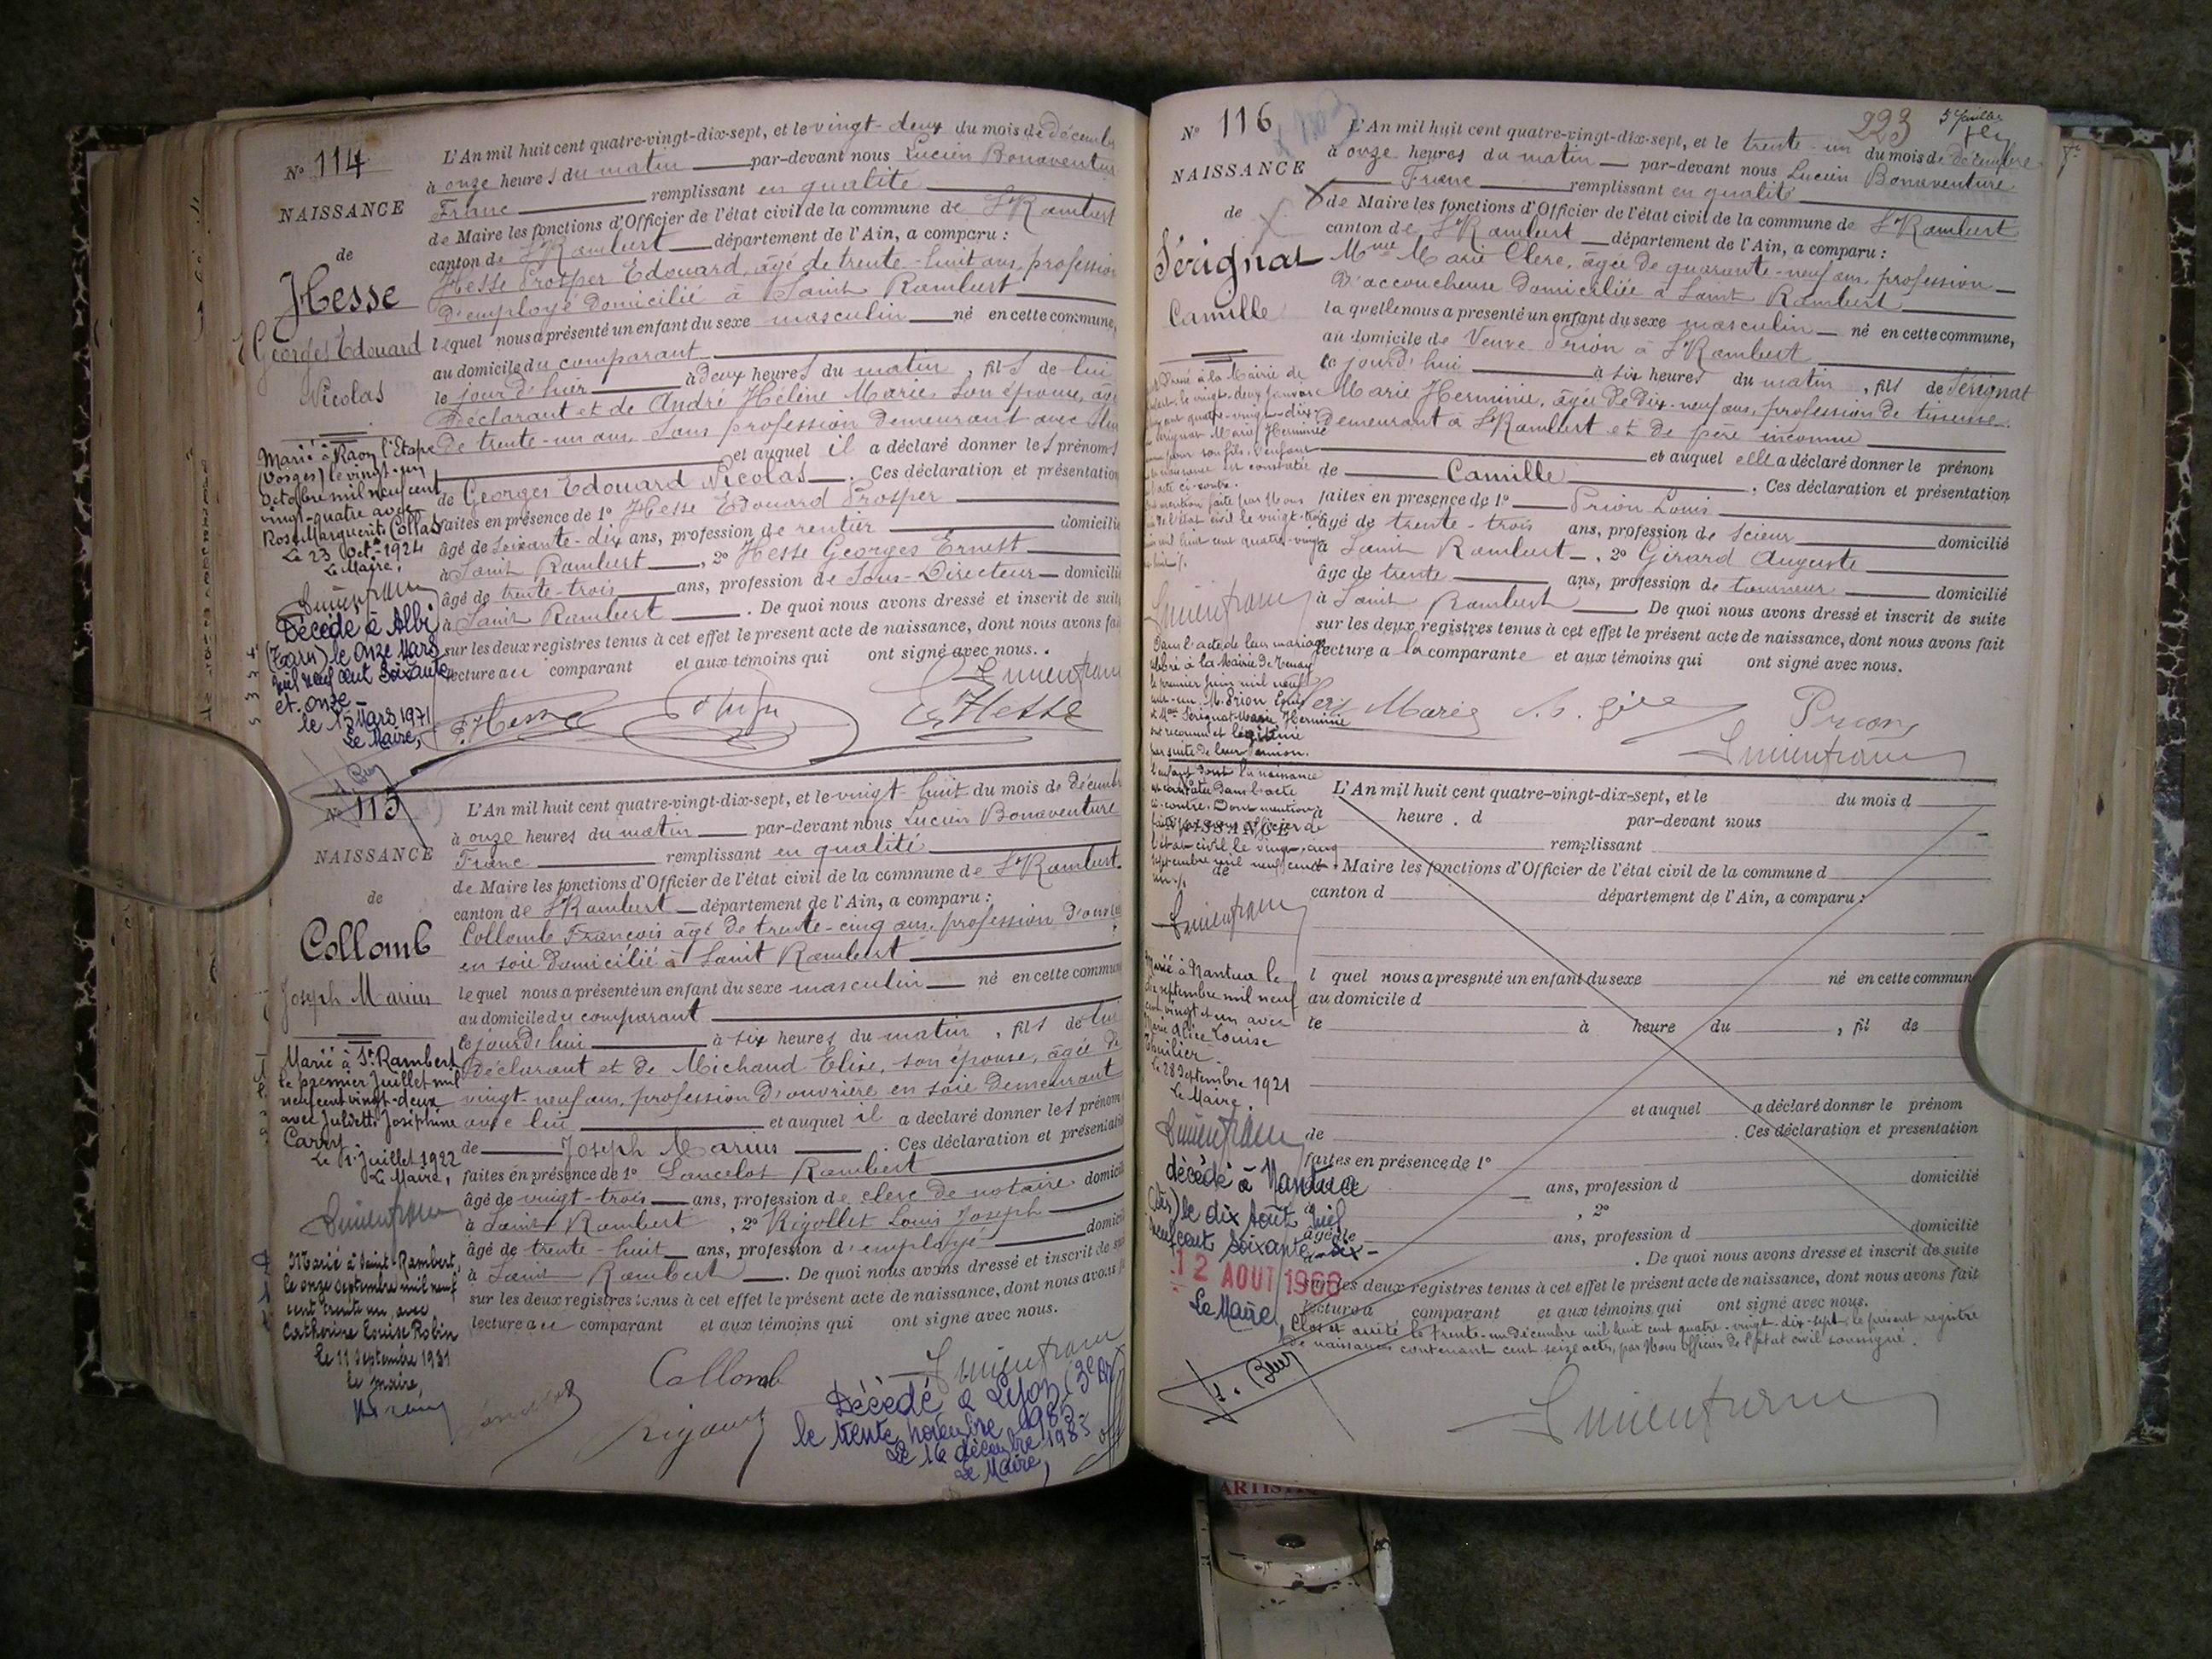 N° 114
NAISSANCE
de
Hesse
Georges Edouard
Nicolas
L'An mil huit cent quatre-vingt-dix-sept, et le vingt-deux du mois de décemb
à onze heures du matin par-devant nous Lucien Bonaventure
Franc remplissant en qualité
de Maire les fonctions d'Officier de l'état civil de la commune de St Rambert
canton de St Rambert département de l'Ain, a comparu :
Hesse Prosper Edouard, âgé de trente-huit ans, profession
d'employé domicilié à Saint Rambert
lequel nous a présenté un enfant du sexe masculin né en cette commune,
au domicile du comparant
le jour d'hier à deux heures du matin, fils de lui
déclarant et de André Hélène Marie, son épouse, âgée
de trente-un ans, sans profession demeurant avec lui
et auquel il a déclaré donner les prénoms
de Georges Edouard Nicolas. Ces déclaration et présentation
faites en présence de 1° Hesse Edouard Prosper
âgé de soixante-dix ans, profession de rentier domicilié
à Saint Rambert, 2° Hesse Georges Ernest
âgé de trente-trois ans, profession de Sous-Directeur domicilié
à Saint Rambert. De quoi nous avons dressé et inscrit de suite
sur les deux registres tenus à cet effet le présent acte de naissance, dont nous avons fait
lecture au comparant et aux témoins qui ont signé avec nous.
Hesse
Hesse
Marié à Raon l'Etape
(Vosges) le vingt-un
Octobre mil neuf cent
vingt-quatre avec
Rose Marguerite Collas
Le 23 Oct. 1924
Le Maire,
Décédé à Albi
(Tarn) le onze Mars
mil neuf cent soixante
et onze
le 15 Mars 1971
Le Maire,
N° 115
NAISSANCE
de
Collomb
Joseph Marius
L'An mil huit cent quatre-vingt-dix-sept, et le vingt-huit du mois de décembre
à onze heures du matin par-devant nous Lucien Bonaventure
Franc remplissant en qualité
de Maire les fonctions d'Officier de l'état civil de la commune de St Rambert
canton de St Rambert département de l'Ain, a comparu :
Collomb François âgé de trente-cinq ans, profession d'ouvrier
en soie domicilié à Saint Rambert
lequel nous a présenté un enfant du sexe masculin né en cette commune
au domicile du comparant
le jourd'hui à six heures du matin, fils de lui
déclarant et de Michaud Elise, son épouse, âgée de
vingt-neuf ans, profession d'ouvrière en soie demeurant
avec lui et auquel il a déclaré donner les prénoms
de Joseph Marius. Ces déclaration et présentation
faites en présence de 1° Lancelot Rambert
âgé de vingt-trois ans, profession de clerc de notaire domicilié
à Saint Rambert, 2° Rigollet Louis Joseph
âgé de trente-huit ans, profession d'employé domicilié
à Saint Rambert. De quoi nous avons dressé et inscrit de suite
sur les deux registres tenus à cet effet le présent acte de naissance, dont nous avons fait
lecture au comparant et aux témoins qui ont signé avec nous.
Collomb
Marié à St Rambert
le premier Juillet mil
neuf cent vingt-deux
avec Juliette Joséphine
Carry.
Le 1er Juillet 1922
Le Maire,
Marié à Saint-Rambert,
le onze septembre mil neuf
cent trente un, avec
Catherine Louise Robin
le 11 septembre 1931
le maire,
Décédé à Lyon (3e Ar)
le trente novembre 1983
le 16 décembre 1983
Le Maire,
N° 116
NAISSANCE
de
Sérignat
Camille
223
L'An mil huit cent quatre-vingt-dix-sept, et le trente-un du mois de décembre
à onze heures du matin par-devant nous Lucien Bonaventure
Franc remplissant en qualité
de Maire les fonctions d'Officier de l'état civil de la commune de St Rambert
canton de St Rambert département de l'Ain, a comparu :
Mme Marie Clere, âgée de quarante-neuf ans, profession
d'accoucheuse domiciliée à Saint Rambert
laquelle nous a présenté un enfant du sexe masculin né en cette commune,
au domicile de Veuve Prion à St Rambert
le jourd'hui à six heures du matin, fils de Sérignat
Marie Herminie, âgée de dix-neuf ans, profession de tisseuse
demeurant à St Rambert et de père inconnu
et auquel elle a déclaré donner le prénom
de Camille. Ces déclaration et présentation
faites en présence de 1° Prion Louis
âgé de trente-trois ans, profession de scieur domicilié
à Saint Rambert, 2° Girard Auguste
âgé de trente ans, profession de tourneur domicilié
à Saint Rambert. De quoi nous avons dressé et inscrit de suite
sur les deux registres tenus à cet effet le présent acte de naissance, dont nous avons fait
lecture à la comparante et aux témoins qui ont signé avec nous.
Prion
Dans l'acte de leur mariage
célébré à la Mairie de Tenay
le premier Juin mil neuf
cent-un, M. Prion
et Mme Sérignat Marie Herminie
ont reconnu et légitimé
par suite de leur union.
l'enfant dont la naissance
est constatée dans l'acte
ci-contre. Dont mention
l'état civil le vingt-cinq
septembre mil neuf cent
un
Marié à Nantua le
septembre mil neuf
cent vingt et un avec
Marie Alice Louise
Le 28 Septembre 1921
Le Maire,
décédé à Nantua
(Ain) le dix Août mil
neuf cent soixante-six
12 AOUT 1966
Le Maire,
L'An mil huit cent quatre-vingt-dix-sept, et le du mois d
heure d par-devant nous
remplissant
Maire les fonctions d'Officier de l'état civil de la commune d
canton d département de l'Ain, a comparu :
l quel nous a présenté un enfant du sexe né en cette commune
au domicile d
le à heure du , fil de
et auquel a déclaré donner le prénom
de . Ces déclaration et présentation
faites en présence de 1°
ans, profession d domicilié
, 2°
âgé de ans, profession d domicilié
. De quoi nous avons dressé et inscrit de suite
sur les deux registres tenus à cet effet le présent acte de naissance, dont nous avons fait
lecture a comparant et aux témoins qui ont signé avec nous.
Clos et arrêté le trente-un décembre mil huit cent quatre-vingt-dix-sept le présent registre
de naissances contenant cent seize actes, par Nous Officier de l'état civil soussigné.
ARTISTI